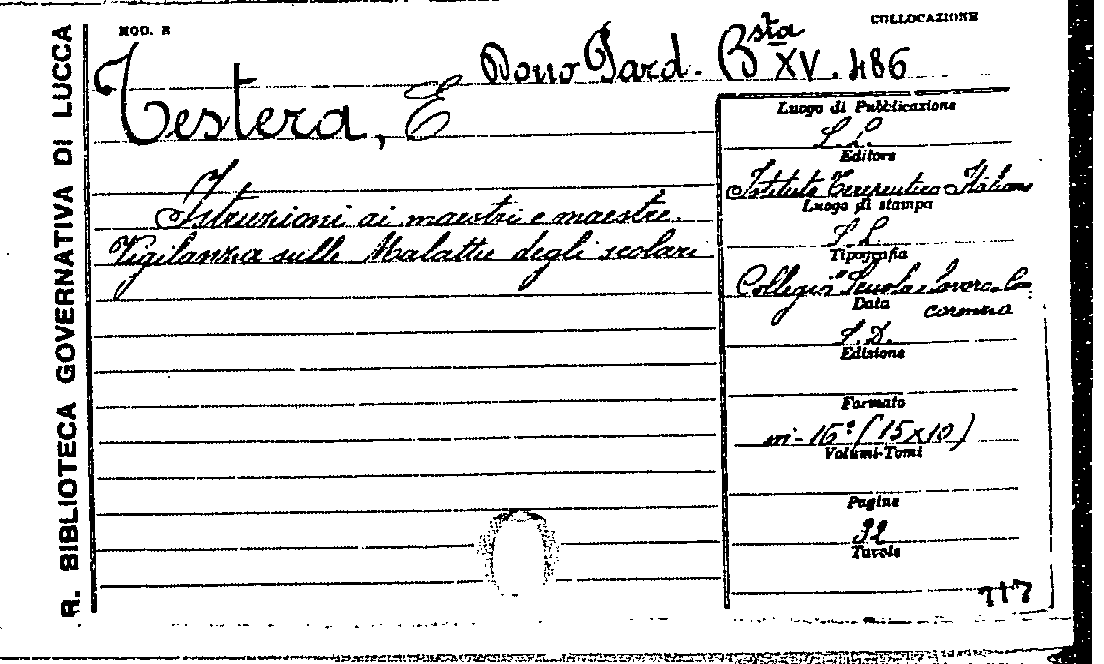 R. BIBLIOTECA GOVERNATIVA DI LUCCA
MOD. R
COLLOCAZIONE
Dono Pard. Bsta XV. 486
Testera, E
Istruzioni ai maestri e maestre.
Vigilanza sulle Malattie degli scolari
Luogo di Pubblicazione
S. L.
Editore
Istituto Terapeutico Italiano
Luogo di stampa
S. L.
Tipografia
Collegio "Scuola e lavoro"
Data
S. D.
Edizione
Formato
in-16º (15x10)
Volumi-Tomi
Pagine
32
Tavole
717